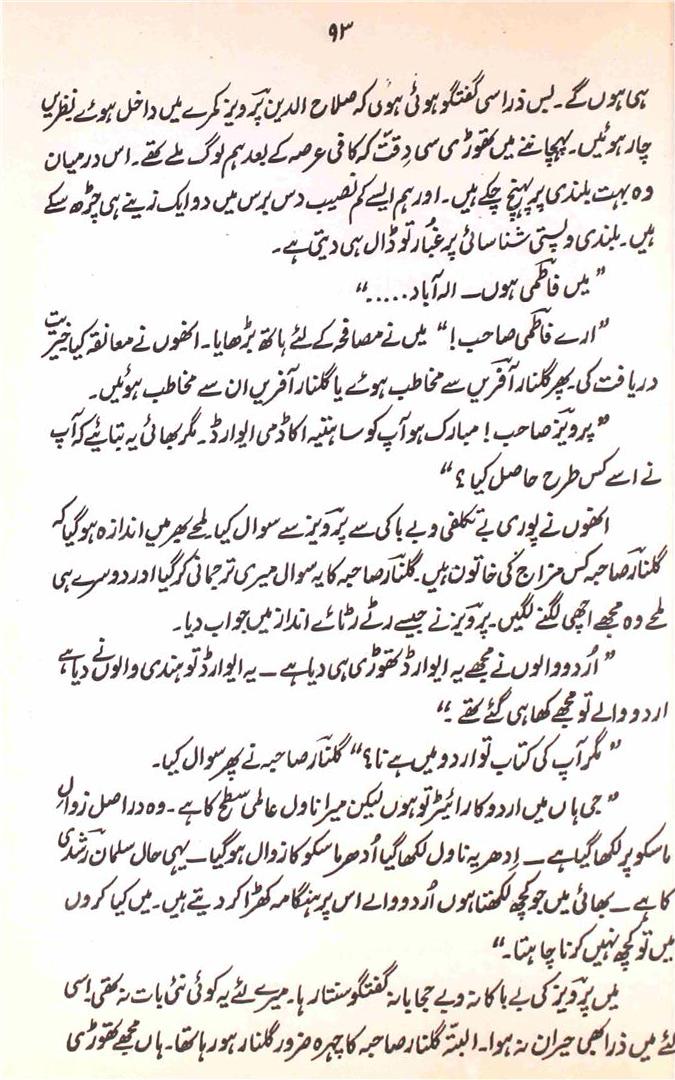 ۹۳
ہی ہوں گے۔ بس ذرا سی گفتگو ہوئی ہوگی کہ صلاح الدین پرویز کمرے میں داخل ہوئے نظریں
چار ہوئیں۔ پہچاننے میں تھوڑی سی دِقت کہ کافی عرصہ کے بعد ہم لوگ ملے تھے۔ اس درمیان
وہ بہت بلندی پر پہنچ چکے ہیں۔ اور ہم ایسے کم نصیب دس برس میں دو ایک زینے ہی چڑھ سکے
ہیں۔ بلندی و پستی شناسائی پر غبُار تو ڈال ہی دیتی ہے۔
”میں فاطمی ہوں ــ الہ آباد.....“
”ارے فاطمی صاحب !“ میں نے مصافحہ کے لئے ہاتھ بڑھایا۔ انھوں نے معانقہ کیا خیریت
دریافت کی۔ پھر گلنار آفریں سے مخاطب ہوئے یا گلنار آفریں ان سے مخاطب ہوئیں۔
”پرویز صاحب ! مبارک ہو آپ کو ساہتیہ اکاڈمی ایوارڈ۔ مگر بھائی یہ بتایئے کہ آپ
نے اسے کس طرح حاصل کیا ؟“
انھوں نے پوری بے تکلفی و بے باکی سے پرویز سے سوال کیا۔ لمحے بھر میں اندازہ ہو گیا کہ
گلنار صاحبہ کس مزاج کی خاتون ہیں۔ گلنار صاحبہ کا یہ سوال میری ترجمانی کر گیا اور دوسرے ہی
لمحے وہ مجھے اچھی لگنے لگیں۔ پرویز نے جیسے رٹے رٹائے انداز میں جواب دیا۔
”اُردو والوں نے مجھے یہ ایوارڈ تھوڑی ہی دیا ہے ــ یہ ایوارڈ تو ہندی والوں نے دیا ہے
اردو والے تو مجھے کھا ہی گئے تھے۔“
”مگر آپ کی کتاب تو اردو میں ہے نا؟“ گلنار صاحبہ نے پھر سوال کیا۔
”جی ہاں میں اردو کا رائیٹر تو ہوں لیکن میرا ناول عالمی سطح کا ہے۔ وہ دراصل زوالِ
ماسکو پر لکھا گیا ہے ــ اِدھر یہ ناول لکھا گیا اُدھر ماسکو کا زوال ہو گیا ــ یہی حال سلمان رشدی
کا ہے ــ بھائی میں جو کچھ لکھتا ہوں اُردو والے اس پر ہنگامہ کھڑا کر دیتے ہیں۔ میں کیا کروں
میں تو کچھ نہیں کرنا چاہتا۔“
میں پرویز کی بے باکانہ و بے حجابانہ گفتگو سنتا رہا۔ میرے لئے یہ کوئی نئی بات نہ تھی۔ اسی
لئے میں ذرا بھی حیران نہ ہوا۔ البتہّ گلنار صاحبہ کا چہرہ ضرور گلنار ہو رہا تھا۔ ہاں مجھے تھوڑی